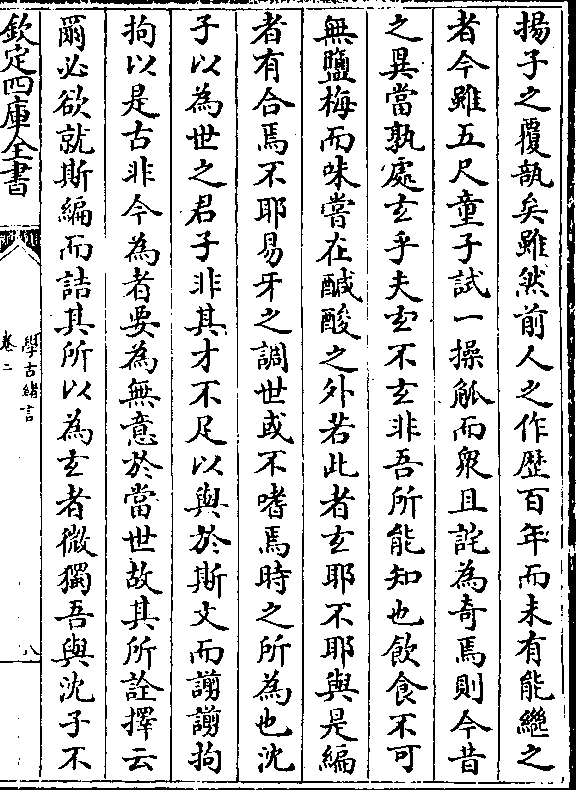 揚子之覆瓿矣雖然前人之作歴百年而未有能繼之
者今雖五尺童子試一操觚而衆且詫為奇焉則今昔
之異當孰處玄乎夫玄不玄非吾所能知也飲食不可
無鹽梅而味嘗在醎酸之外若此者玄耶不耶與是編
者有合焉不耶易牙之調世或不嗜焉時之所為也沈
子以為世之君子非其才不足以與於斯文而謭謭拘
拘以是古非今為者要為無意於當世故其所詮擇云
爾必欲就斯編而詰其所以為玄者微獨吾與沈子不
欽定四庫全書
學古緒言
卷二
八